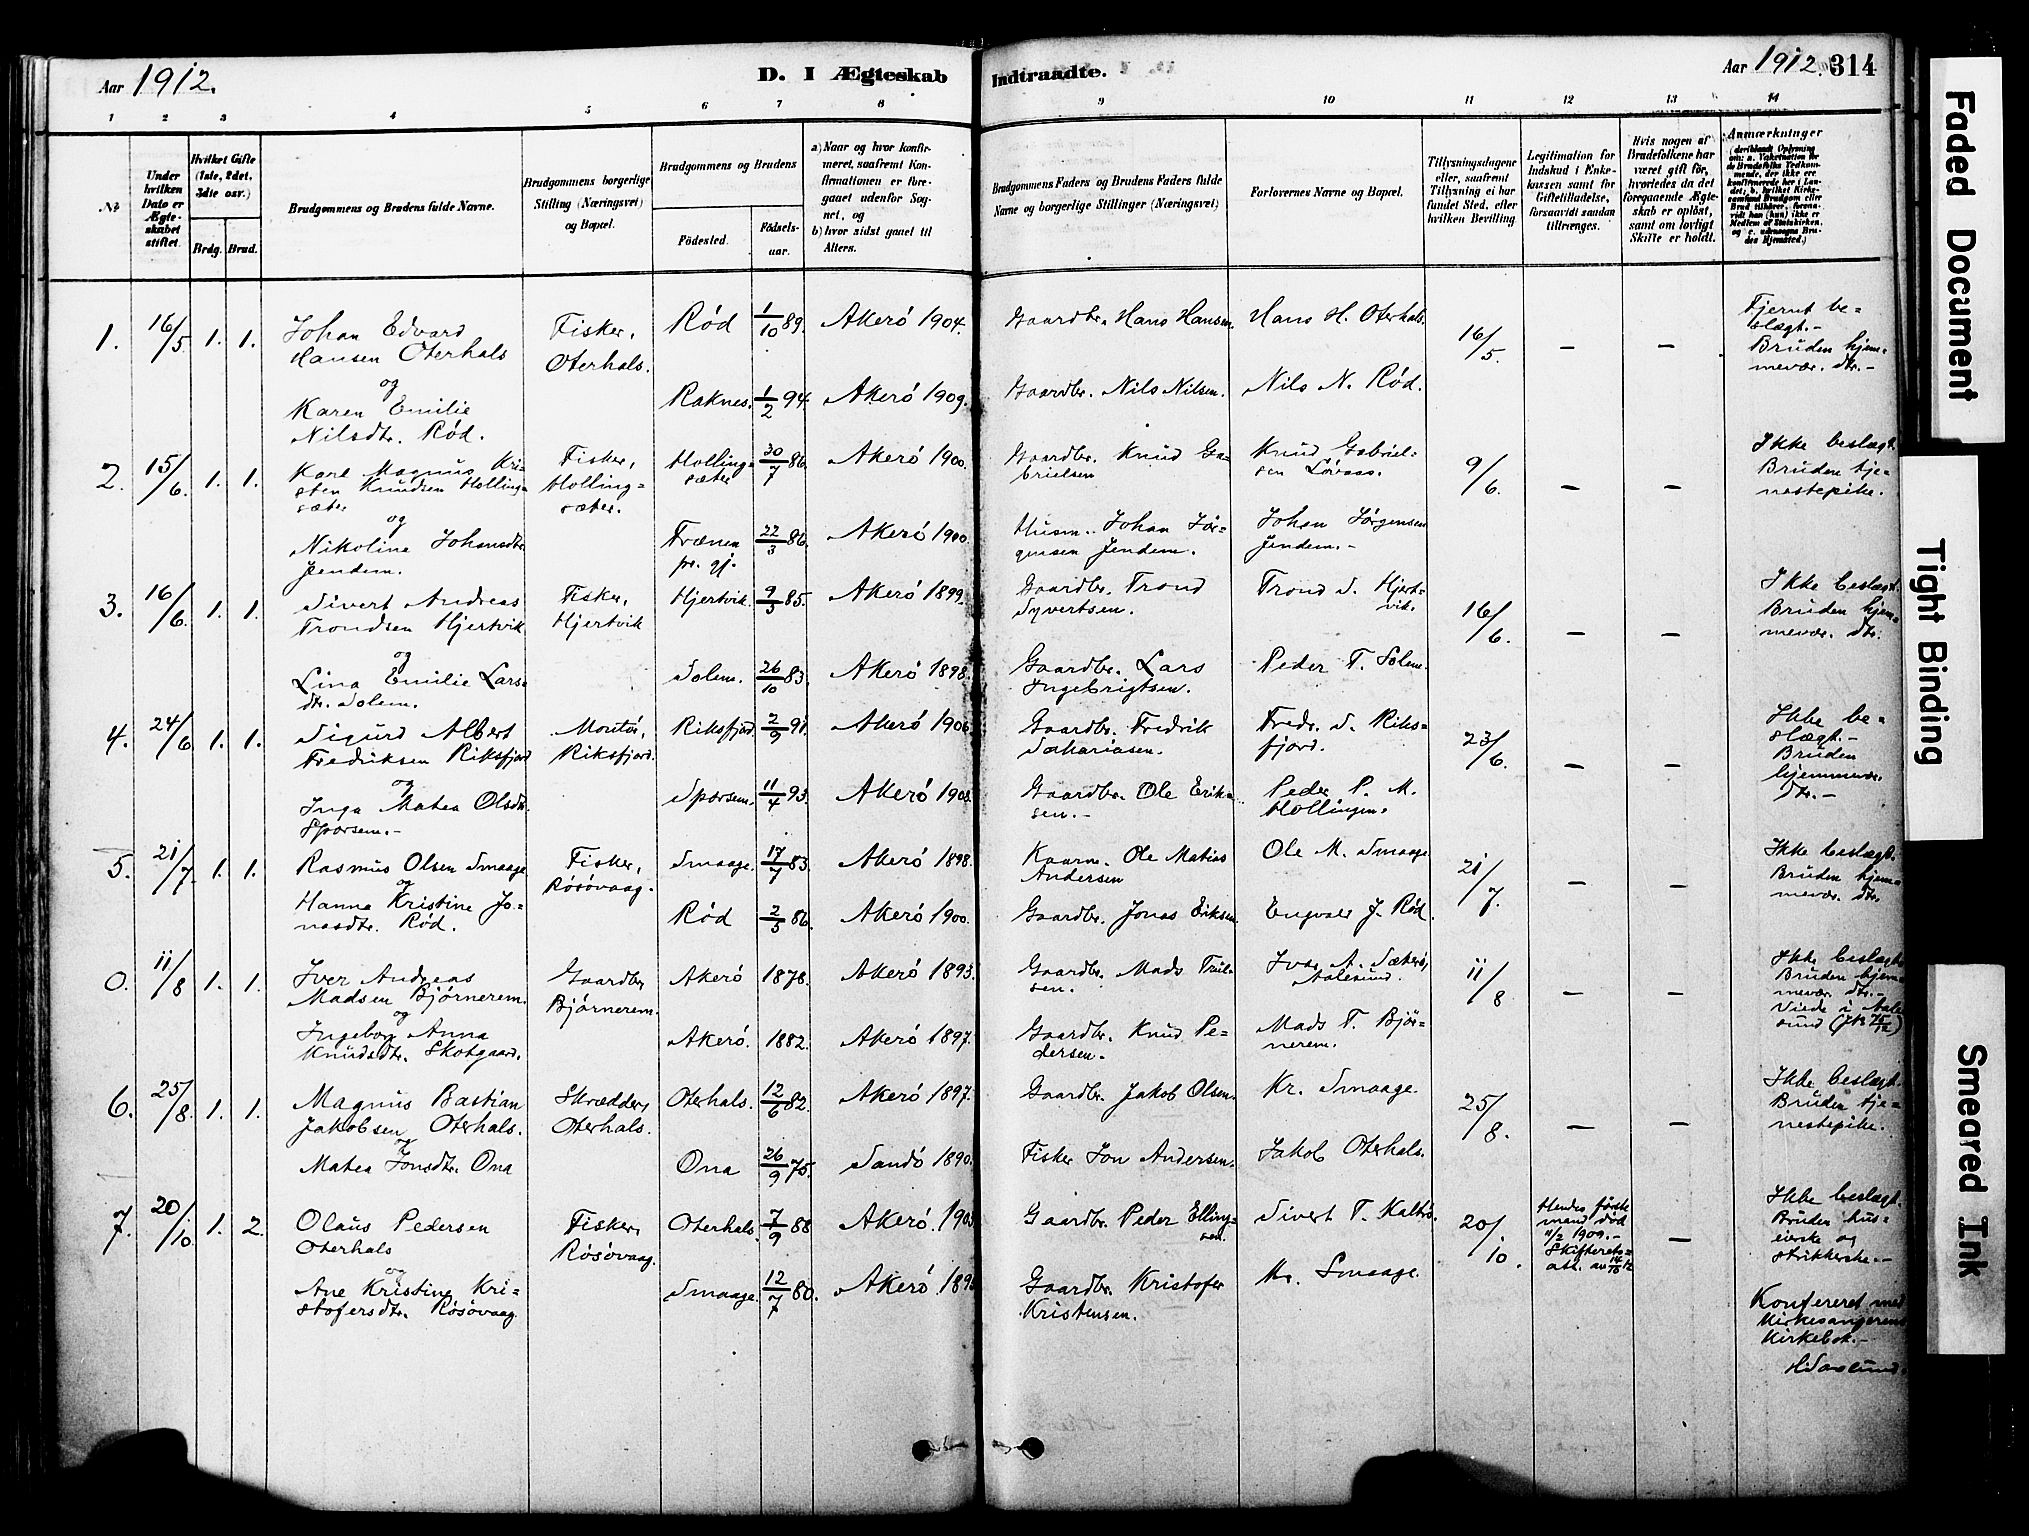 Aar 1912.
D. I Ægteskab Indtraadte.
Aar 1912. 314
1 2 3 4 5 6 7 8 9 10 11 12 13 14
No.
Under hvilken Dato er Ægteskabet stiftet.
Hvilket Gifte (1ste, 2det, 3die osv.)
Brdg. Brud.
Brudgommens og Brudens fulde Navne.
Brudgommens borgerlige Stilling (Næringsvei) og Bopæl.
Brudgommens og Brudens
Fødested. Fødselsaar.
a) Naar og hvor konfirmeret, saafremt Konfirmationen er foregaaet udenfor Sognet, og
b) hvor sidst gaaet til Alters.
Brudgommens Faders og Brudens Faders fulde Navne og borgerlige Stillinger (Næringsvei)
Forlovernes Navne og Bopæl.
Tillysningsdagene eller, saafremt Tillysning ei har fundet Sted, efter hvilken Bevilling
Legitimation for Indskud i Enkekassen samt for Giftetilladelse, forsaavidt saadan tiltrænges.
Hvis nogen af Brudefolkene har været gift før, hvorledes da det foregaaende Ægteskab er opløst, samt om lovligt Skifte er holdt.
Anmærkninger
1. 16/5 1. 1. Johan Edvard Fisker, Rød 1/10 89. Akerö 1904. Gaardbr. Hans Hansen. Hans H. Oterhals. 16/5. — — Fjernt be-
Hansen Oterhals Oterhals. slægt.-
og Bruden hjem-
Karen Emilie Raknes. 1/2 94 Akerö 1909. Gaardbr. Nils Nilsen. Nils N. Rød. mevær. dtr.-
Nilsdtr. Rød.
2. 15/6. 1. 1. Karl Magnus Kri- Fisker, Holling- 30/7 86 Akerö 1900. Gaardbr. Knud Ga- Knud Gabriel- 9/6. — — Ikke beslægt.
sten Knudsen Holling- Holling- sæter brielsen sen Løvaas. Bruden tje-
sæter sæter. nestepike.
og
Nikoline Johansdtr. Frænen 22/3 86. Akerö 1900. Husm. Johan Jør- Johan Jørgensen
Jendem. pr. gj. gensen Jendem. Jendem.-
3. 16/6. 1. 1. Sivert Andreas Fisker, Hjertvik. 9/3 85. Akerö 1899. Gaardbr. Trond Trond S. Hjert- 16/6. — — Ikke beslægt.
Trondsen Hjertvik Hjertvik Syvertsen. vik. Bruden hjem-
og mevær. dtr.
Lina Emilie Lars- Solem. 26/10 83. Akerö 1898. Gaardbr. Lars Peder T. Solem.
dtr. Solem. Ingebrigtsen.
4. 24/6 1. 1. Sigurd Albert Montør, Riksfjord 2/9 91. Akerö 1906. Gaardbr. Fredrik Fredr. S. Riks- 23/6. — — Ikke be-
Fredriksen Riksfjord Riksfjord. Sakariasen. fjord. slægt.-
og Bruden
Inga Matea Olsdtr. Sporsem. 11/4 93. Akerö 1908. Gaardbr. Ole Erik- Peder P. M. hjemmevær.
Sporsem.- sen.- Hollingen. dtr.-
5. 21/7. 1. 1. Rasmus Olsen Smaage Fisker, Smaage. 17/7 83. Akerö 1898. Kaarm. Ole Matias Ole M. Smaage 21/7. — — Ikke beslægt.
og Røsøvaag. Andersen Bruden hjem-
Hanna Kristine Jo- Rød 2/5 86. Akerö 1900. Gaardbr. Jonas Eriksen. Engvald J. Rød. mevær. dtr.
nasdtr. Rød.
0. 11/8 1. 1. Iver Andreas Gaardbr. Akerö 1878. Akerö 1893. Gaardbr. Mads Iver A. 11/8 — — Ikke beslægt.
Madsen Bjørnerem. Bjørnerem. sen. Aalesund. Bruden hjem-
og mevær. dtr.-
Ingeborg Anna Akerö. 1882. Akerö 1897. Gaardbr. Knud Pe- Mads T. Bjør- Viede i Aale-
Knudsdtr. Skotgaard. dersen. nerem. sund
6. 25/8. 1. 1. Magnus Bastian Skrædder, Oterhals. 12/6 82. Akerö 1897. Gaardbr. Jakob Olsen. Kr. Smaage. 25/8. — — Ikke beslægt.
Jakobsen Oterhals. Oterhals. Bruden tje-
og nestepike.
Matea Jonsdtr. Ona Ona 26/9 75. Sandö 1890. Fisker Jon Andersen. Jakob Oterhals.
7. 20/10. 1. 2. Olaus Pedersen Fisker, Oterhals. 7/9 88 Akerö. Gaardbr. Peder Elling- Sivert T. 20/10. Hendes første — Ikke beslægt.
Oterhals Røsøvaag. sen. mand død Bruden hus-
og 11/2 1909.- eierske og
Ane Kristine Kri- Smaage. 12/7 80. Akerö Gaardbr. Kristofer Kr. Smaage. Skifterets- strikkerske.-
stofersdtr. Røsøvaag. Kristensen. att. av
Konfereret med
Kirkesangerens
Kirkebok.-
Faded Document
Tight Binding
Smeared Ink